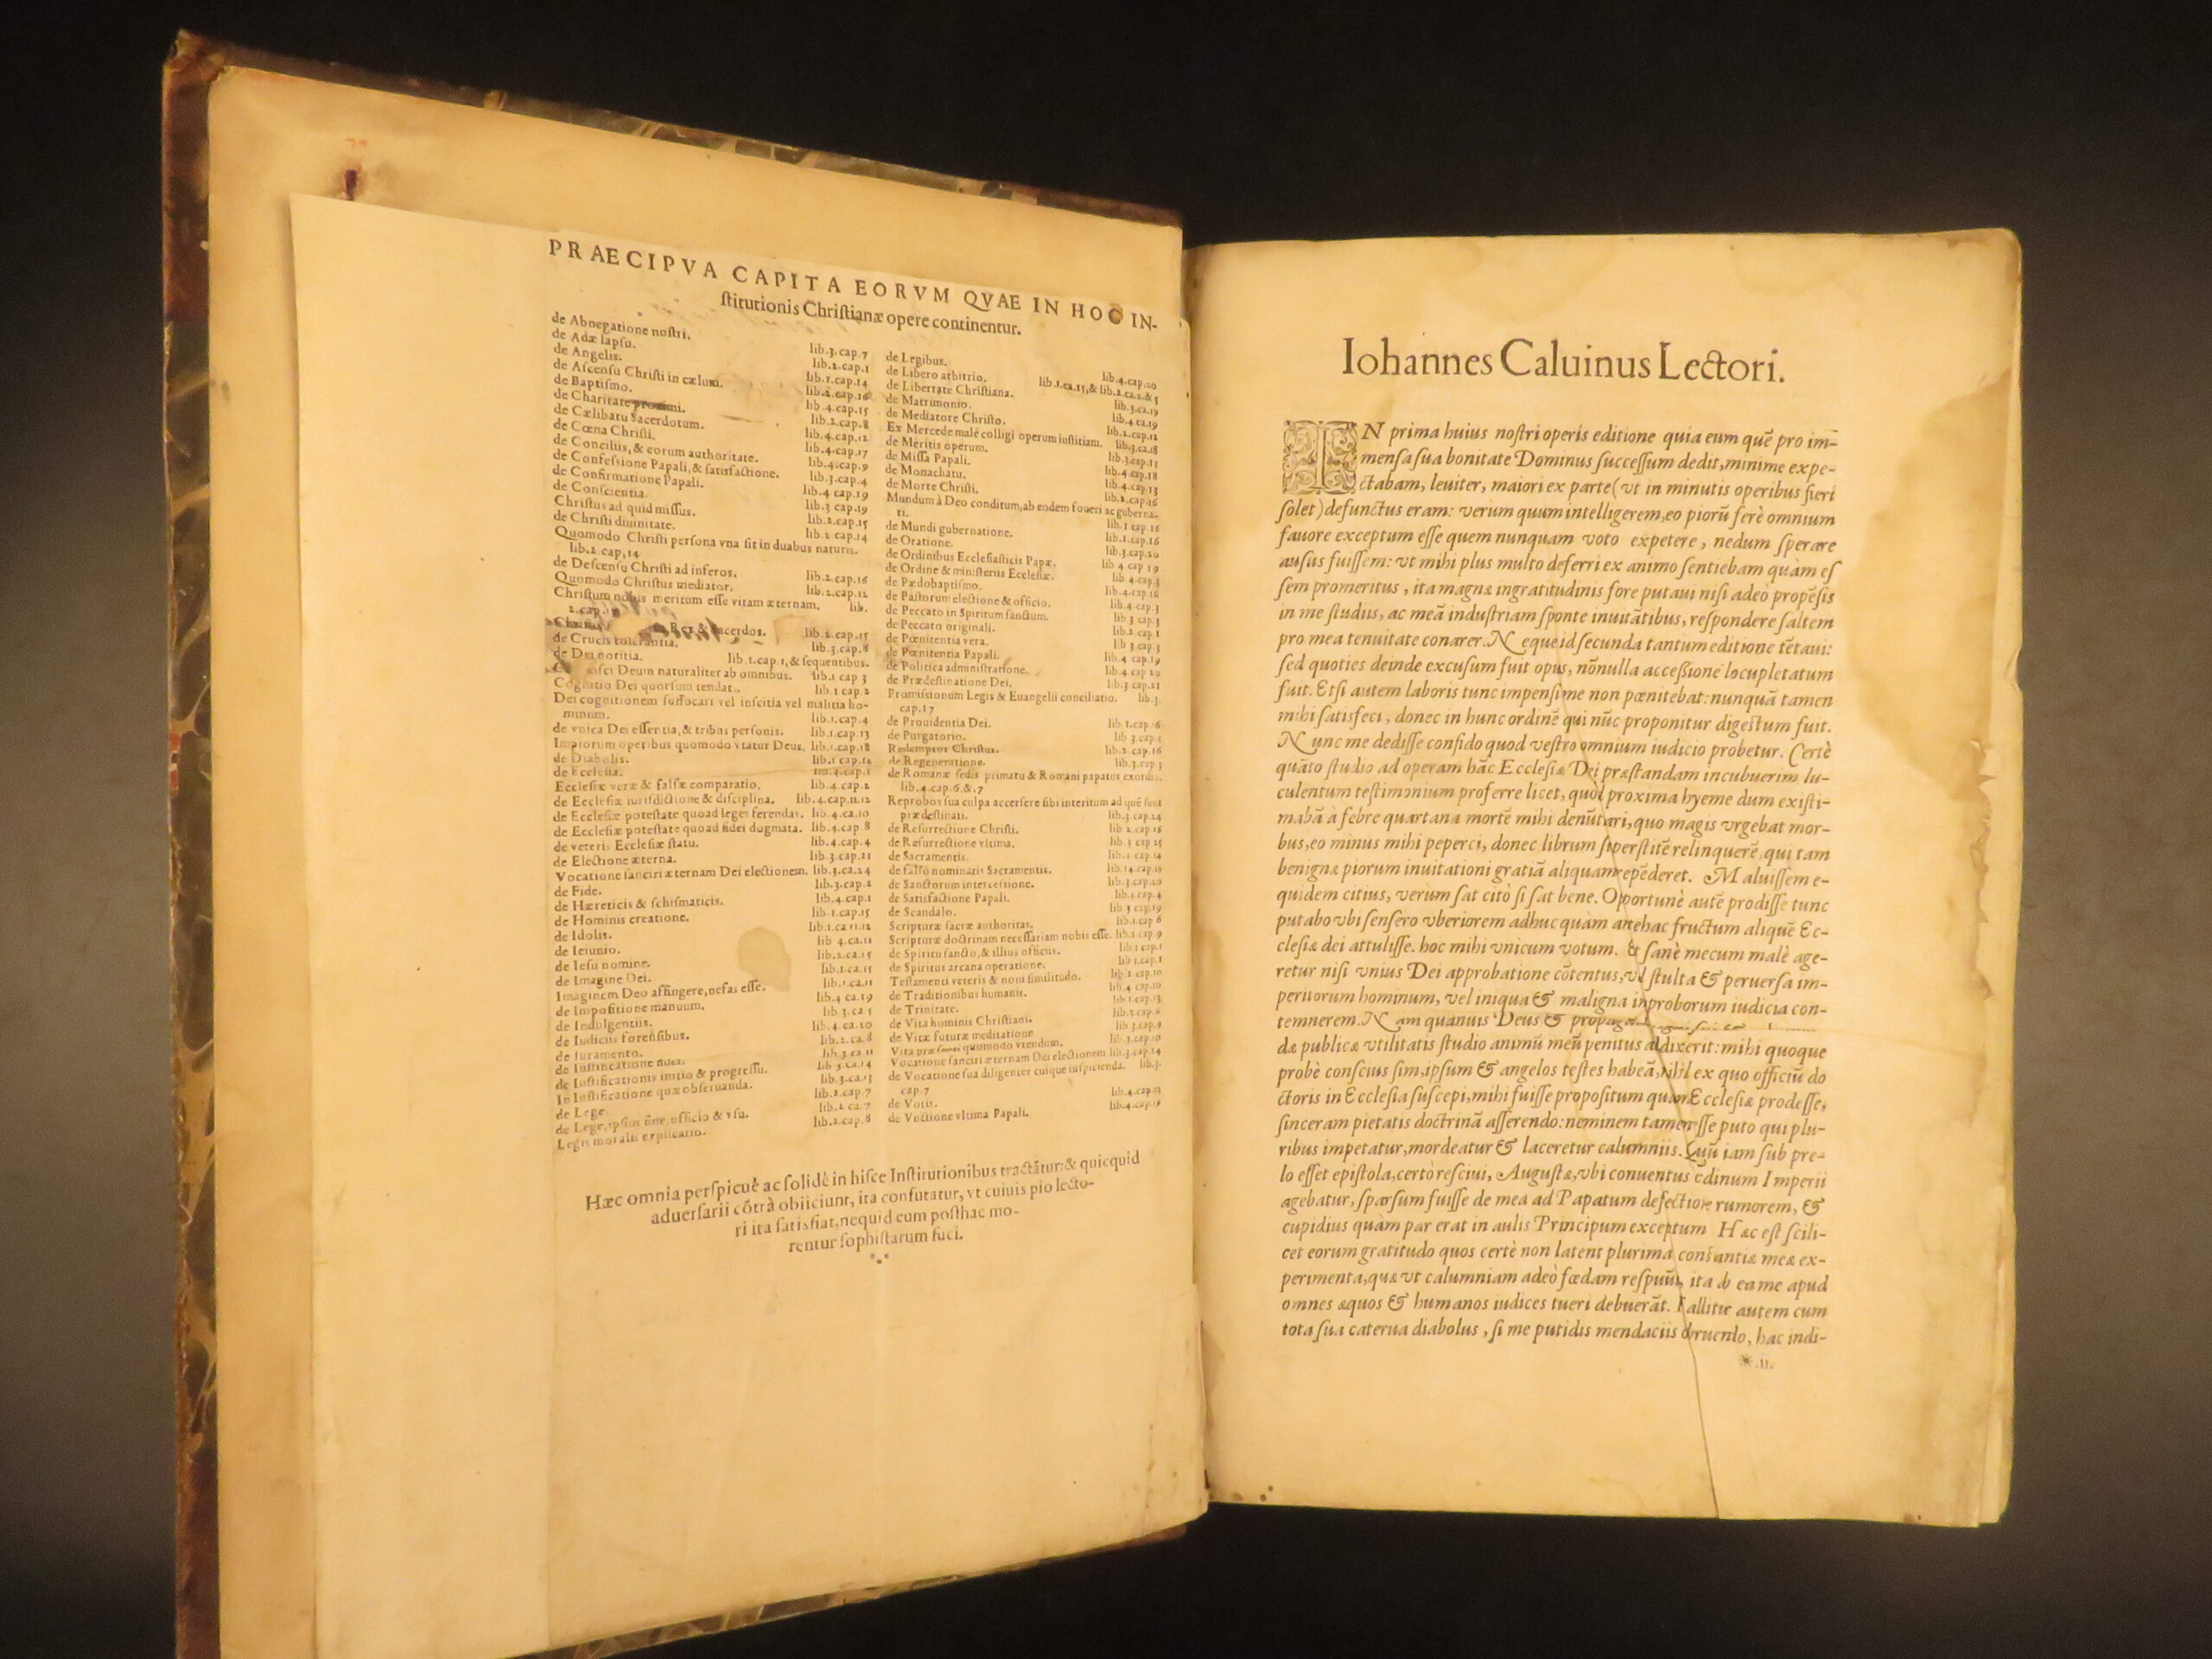 PRAECIPVA CAPITA EORVM QVAE IN HOC IN-
ſtitutionis Chriſtianæ opere continentur.
de Abnegatione noſtri. lib.3.cap.7
de Adæ lapſu. lib.2.cap.1
de Angelis. lib.1.cap.14
de Aſcenſu Chriſti in cælum. lib.2.cap.16
de Baptiſmo. lib.4.cap.15
de Charitate proximi. lib.2.cap.8
de Cælibatu Sacerdotum. lib.4.cap.12
de Cœna Chriſti. lib.4.cap.17
de Conciliis, & eorum authoritate. lib.4.cap.9
de Confeſsione Papali, & ſatisfactione. lib.3.cap.4
de Confirmatione Papali. lib.4 cap.19
de Conſcientia. lib.3 cap.19
Chriſtus ad quid miſſus. lib.2.cap.15
de Chriſti diuinitate. lib.2 cap.14
Quomodo Chriſti perſona vna ſit in duabus naturis.
lib.2 cap.14
de Deſcenſu Chriſti ad inferos. lib.2.cap.16
Quomodo Chriſtus mediator. lib.2.cap.12
Chriſtum nobis meritum eſſe vitam æternam. lib.
2.cap.
Rex & ſacerdos. lib.2.cap.15
de Crucis tolerantia. lib.3.cap.8
de Dei notitia. lib.1.cap.1, & ſequentibus.
Deum naturaliter ab omnibus. lib.1 cap 3
Cognitio Dei quorſum tendat. lib.1 cap 2
Dei cognitionem ſuffocari vel inſcitia vel malitia ho-
minum. lib.1.cap.4
de vnica Dei eſſentia, & tribus perſonis. lib.1.cap.13
Impiorum operibus quomodo vtatur Deus. lib.1.cap.18
de Diabolis. lib.1 cap.14
de Eccleſia. lib.4.cap.1
Eccleſiæ veræ & falſæ comparatio. lib.4.cap.2
de Eccleſiæ iuriſdictione & diſciplina. lib.4.cap.11.12
de Eccleſiæ poteſtate quoad leges ferendas. lib.4.ca.10
de Eccleſiæ poteſtate quoad fidei dogmata. lib.4.cap.8
de veteris Eccleſiæ ſtatu. lib.4.cap.4
de Electione æterna. lib.3.cap.21
Vocatione ſanciri æternam Dei electionem. lib.3.ca.24
de Fide. lib.3.cap.2
de Hæreticis & ſchiſmaticis. lib.4.cap.1
de Hominis creatione. lib.1.cap.15
de Idolis. lib.1.ca 11.12
de Ieiunio. lib 4.ca.12
de Ieſu nomine. lib.2.ca.15
de Imagine Dei. lib.1.ca.15
Imaginem Deo affingere, nefas eſſe. lib.1.ca.11
de Impoſitione manuum. lib.4 ca.19
de Indulgentiis. lib.3.ca.5
de Iudiciis forenſibus. lib.4.ca.20
de Iuramento. lib.2.ca.8
de Iuſtificatione fidei. lib 3.ca.11
de Iuſtificationis initio & progreſſu. lib 3.ca.14
In Iuſtificatione quæ obſeruanda. lib.3.ca.13
de Lege. lib.2.cap.7
de Lege, ipſius fine, officio & vſu. lib.2 ca.7
Legis moralis explicatio. lib.2.cap.8
de Legibus. lib.4.cap.20
de Libero arbitrio. lib.1.ca.15, & lib.2.ca.2.& 5
de Libertate Chriſtiana. lib.3.ca.19
de Matrimonio. lib.4.ca.19
de Mediatore Chriſto. lib.2.cap.12
Ex Mercede malè colligi operum iuſtitiam. lib.3.ca.18
de Meritis operum. lib.3.cap.15
de Miſſa Papali. lib.4.cap.18
de Monachatu. lib.4.cap.13
de Morte Chriſti. lib.2.cap.16
Mundum à Deo conditum, ab eodem foueri ac guberna-
ri. lib.1 cap.16
de Mundi gubernatione. lib.1.cap.16
de Oratione. lib.3.cap.20
de Ordinibus Eccleſiaſticis Papæ. lib 4 cap 19
de Ordine & miniſteriis Eccleſiæ. lib 4.cap.3
de Pædobaptiſmo. lib.4.cap.16
de Paſtorum electione & officio. lib.4.cap.3
de Peccato in Spiritum ſanctum. lib 3 cap.3
de Peccato originali. lib.2.cap.1
de Pœnitentia vera. lib 3.cap.3
de Pœnitentia Papali. lib.4 cap.19
de Politica adminiſtratione. lib.4 cap 20
de Prædeſtinatione Dei. lib.3.cap.21
Promiſsionum Legis & Euangelii conciliatio. lib.3
cap.17
de Prouidentia Dei. lib 1.cap.16
de Purgatorio. lib 3.cap.5
Redemptor Chriſtus. lib.2 cap.16
de Regeneratione. lib.3.cap.3
de Romanæ ſedis primatu & Romani papatus exordio.
lib.4.cap.6 &.7
Reprobos ſua culpa accerſere ſibi interitum ad quē ſunt
prædeſtinati. lib.3 cap.24
de Reſurrectione Chriſti. lib 2.cap.16
de Reſurrectione vltima. lib.3 cap 25
de Sacramentis. lib.4 cap 14
de falſò nominatis Sacramentis. lib.4.cap.19
de Sanctorum interceſsione. lib.3.cap.20
de Satisfactione Papali. lib.3.cap.4
de Scandalo. lib 3 cap.19
Scripturæ ſacræ authoritas.
Scripturæ doctrinam neceſſariam nobis eſſe.
de Spiritu ſancto, & illius officiis. lib 3 cap.1
de Spiritus arcana operatione. lib 3.cap.1
Teſtamenti veteris & noui ſimilitudo. lib.2 cap.10
de Traditionibus humanis. lib.4 cap.10
de Trinitate. lib 1.cap.13
de Vita hominis Chriſtiani. lib.3.cap.6
de Vitæ futuræ meditatione. lib 3.cap.9
Vita præſenti quomodo vtendum. lib.3.cap.10
Vocatione ſanciri æternam Dei electionem lib.3.cap.24
de Vocatione ſua diligenter cuique inſpicienda. lib.3.
cap.7
de Votis. lib.4.cap.13
de Vnctione vltima Papali. lib.4.cap.19
Hæc omnia perſpicuè ac ſolidè in hiſce Inſtitutionibus tractātur: & quicquid
aduerſarii cōtrà obiiciunt, ita confutatur, vt cuiuis pio lecto-
ri ita ſatisfiat, nequid eum poſthac mo-
rentur ſophiſtarum fuci.
Iohannes Caluinus Lectori.
IN prima huius noſtri operis editione quia eum quē pro im-
menſa ſua bonitate Dominus ſucceſſum dedit, minime expe-
ctabam, leuiter, maiori ex parte (vt in minutis operibus fieri
ſolet) defunctus eram: verum quum intelligerem, eo piorū ferè omnium
fauore exceptum eſſe quem nunquam voto expetere, nedum ſperare
auſus fuiſſem: vt mihi plus multo deferri ex animo ſentiebam quàm eſ
ſem promeritus, ita magnæ ingratitudinis fore putaui niſi adeò propēſis
in me ſtudiis, ac meā induſtriam ſponte inuitātibus, reſpondere ſaltem
pro mea tenuitate conarer. Neque id ſecunda tantum editione tētaui:
ſed quoties deinde excuſum fuit opus, nōnulla acceſsione locupletatum
fuit. Etſi autem laboris tunc impenſi me non pœnitebat: nunquā tamen
mihi ſatisfeci, donec in hunc ordinē qui nūc proponitur digeſtum fuit.
Nunc me dediſſe confido quod veſtro omnium iudicio probetur. Certè
quāto ſtudio ad operam hāc Eccleſiæ Dei præſtandam incubuerim lu-
culentum teſtimonium proferre licet, quod proxima hyeme dum exiſti-
mabā à febre quartana mortē mihi denūtiari, quo magis vrgebat mor-
bus, eo minus mihi peperci, donec librum ſuperſtitē relinquerē, qui tam
benignæ piorum inuitationi gratiā aliquam repēderet. Maluiſſem e-
quidem citius, verùm ſat citò ſi ſat bene. Opportunè autē prodiſſe tunc
putabo vbi ſenſero vberiorem adhuc quàm antehac fructum aliquē Ec-
cleſiæ dei attuliſſe. hoc mihi vnicum votum. & ſanè mecum malè age-
retur niſi vnius Dei approbatione cōtentus, vel ſtulta & peruerſa im-
peritorum hominum, vel iniqua & maligna improborum iudicia con-
temnerem. Nam quanuis Deus &
dæ publicæ vtilitatis ſtudio animū meū penitus addixerit: mihi quoque
probè conſcius ſim, ipſum & angelos teſtes habeā, nihil ex quo officiū do
ctoris in Eccleſia ſuſcepi, mihi fuiſſe propoſitum quàm Eccleſiæ prodeſſe,
ſinceram pietatis doctrinā aſſerendo: neminem tamen eſſe puto qui plu-
ribus impetatur, mordeatur & laceretur calumniis. Quū iam ſub pre-
lo eſſet epiſtola, certò reſciui, Auguſtæ, vbi conuentus ordinum Imperii
agebatur, ſparſum fuiſſe de mea ad Papatum defectione rumorem, &
cupidius quàm par erat in aulis Principum exceptum Hæc eſt ſcili-
cet eorum gratitudo quos certè non latent plurima conſtantiæ meæ ex-
perimenta, quæ vt calumniam adeò fœdam reſpuūt, ita ab ea me apud
omnes æquos & humanos iudices tueri debuerāt. Fallitur autem cum
tota ſua caterua diabolus, ſi me putidis mendaciis obruendo, hac indi-
*.ii.